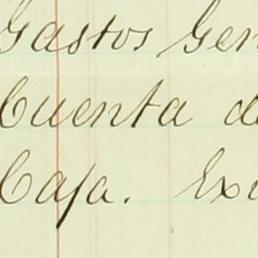 Gastos Gen
Cuenta de
Caja. Exi